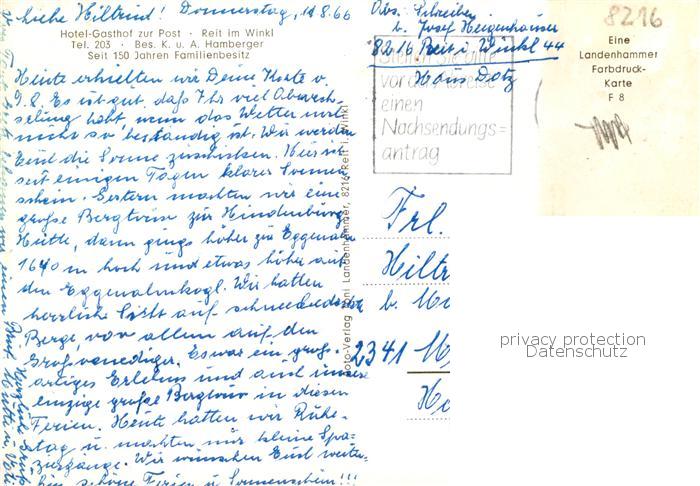 Liebe Hiltrud! Donnerstag, 11.8.66
Hotel-Gasthof zur Post · Reit im Winkl
Tel. 203 · Bes. K. u. A. Hamberger
Seit 150 Jahren Familienbesitz
Heute erhielten wir Deine Karte v.
9.8. Es ist gut, daß Ihr viel Abwech-
selung habt, wenn das Wetter mal
nicht so beständig ist. Wir werden
Euch die Sonne zuschicken. Hier ist
seit einigen Tagen klarer Sonnen-
schein. Gestern machten wir eine
große Bergtour zur Hindenburg
Hütte, dann gings höher zur Eggenalm
1640 m hoch und etwas höher auf
den Eggenalmkogl. Wir hatten
herrliche Sicht auf schneebedeckte
Berge, vor allem auf den
Großvenediger. Es war ein groß-
artiges Erlebnis und auch unsere
einzige große Bergtour in diesen
Ferien. Heute hatten wir Ruhe-
tag u. machten nur kleine Spa-
ziergänge. Wir wünschen Euch weiter-
hin schöne Ferien u. Sonnenschein!!!
Herzliche Grüße
Mutti u. Vati
Foto-Verlag Toni Landenhammer, 8216 Reit i. Winkl
Abs. Schreiber
b. Josef Heigenhauser
8216 Reit i. Winkl 44
Haus Dotz
Stellen Sie bitte
vor der Abreise
einen
Nachsendungs=
antrag
8216
Eine
Landenhammer
Farbdruck-
Karte
F 8
Frl.
Hiltr
b.
2341
privacy protection
Datenschutz